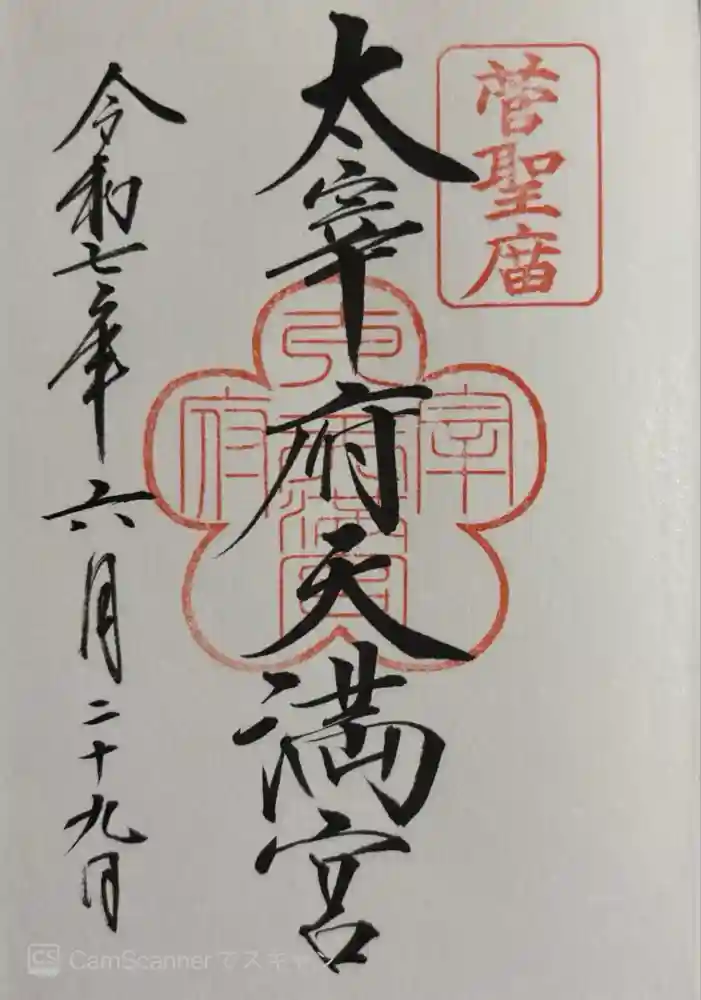 菅聖庿
太宰府天満宮
令和七年六月二十九日
CamScannerでスキャン